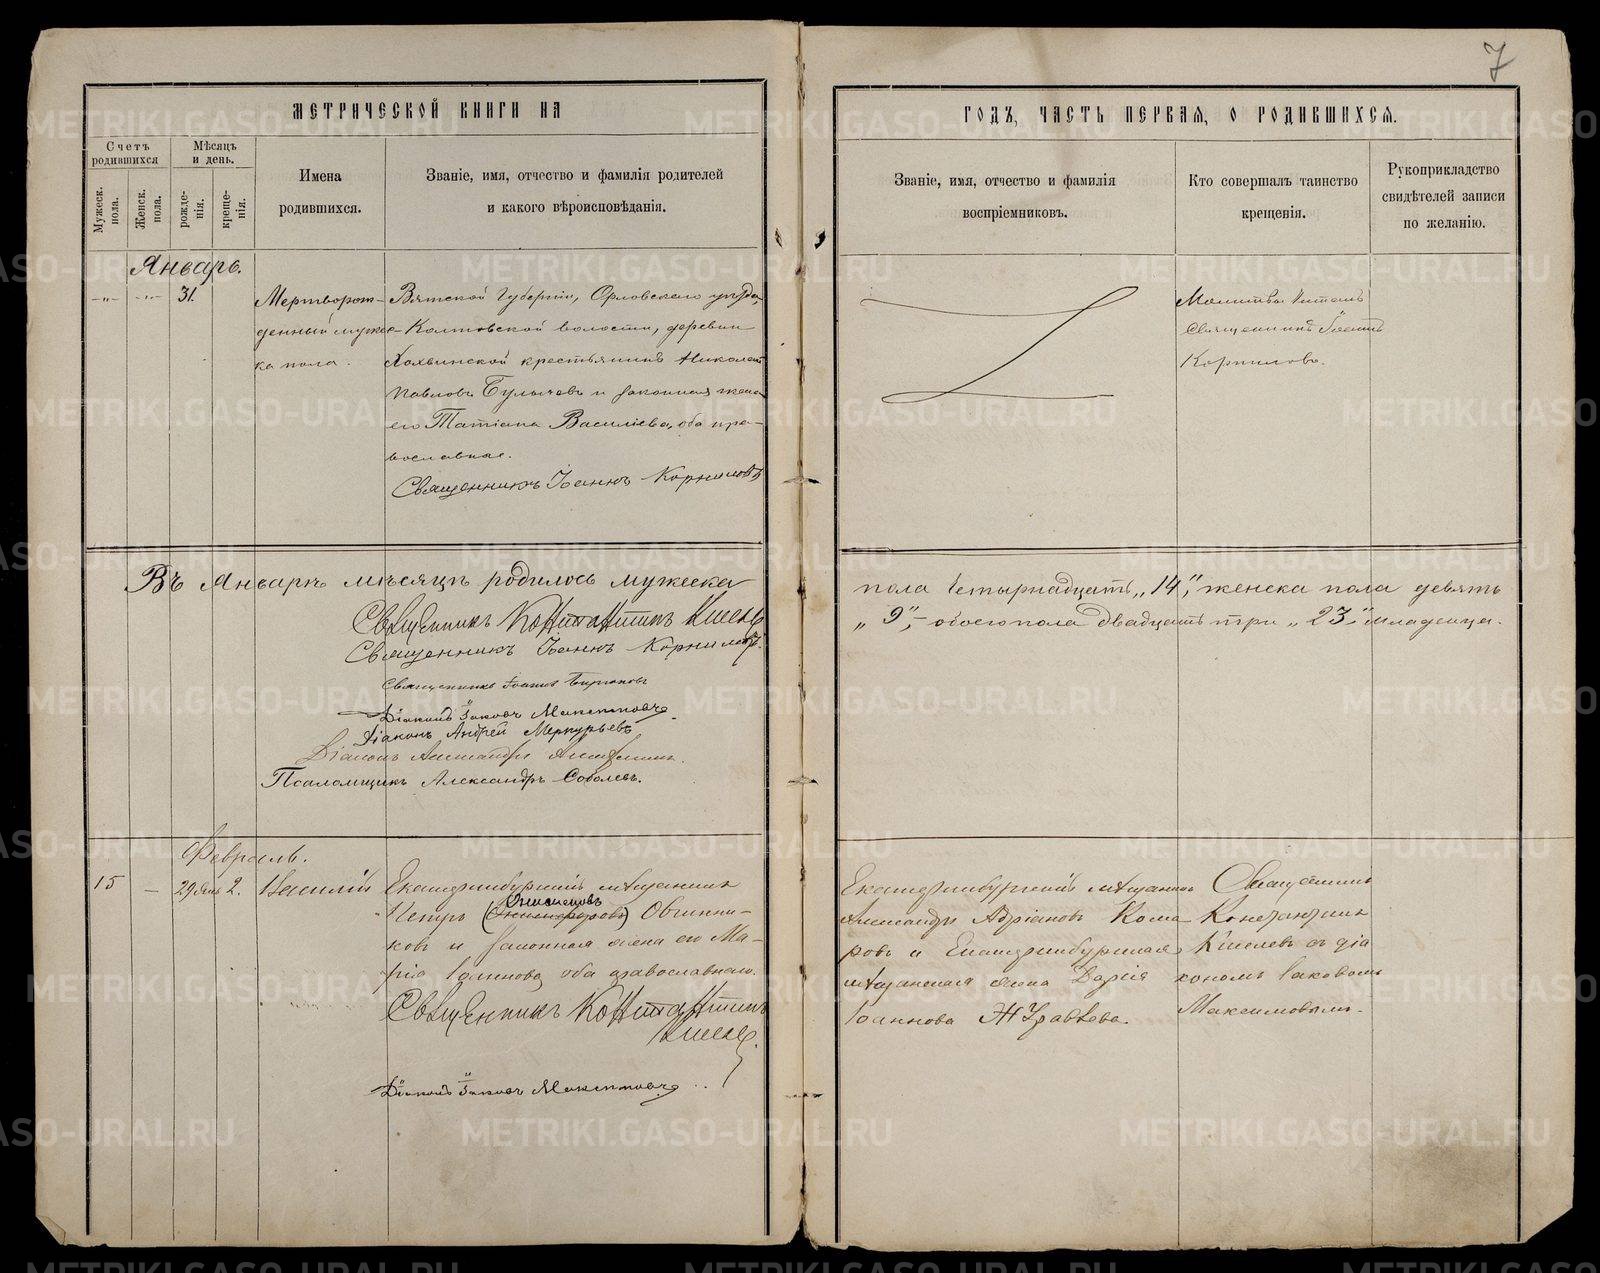 7
МЕТРИЧЕСКОЙ КНИГИ НА
ГОДЪ, ЧАСТЬ ПЕРВАЯ, О РОДИВШИХСЯ.
Счетъ
родившихся
Мѣсяцъ
и день.
Мужеск.
пола.
Женск.
пола.
рожде-
нія.
креще-
нія.
Имена
родившихся.
Званіе, имя, отчество и фамилія родителей
и какого вѣроисповѣданія.
Званіе, имя, отчество и фамилія
воспріемниковъ.
Кто совершалъ таинство
крещенія.
Рукоприкладство
свидѣтелей записи
по желанію.
Январь.
31.
Мертворож-
денный мужес-
ка пола.
Вятской Губерніи, Орловскаго уѣзда,
волости, деревни
крестьянинъ Николай
Павловъ Булычевъ и законная жена
его Татіана Василіева, оба пра-
вославные.
Священникъ Іоаннъ Корниловъ
Молитву читалъ
Священникъ Іоаннъ
Корниловъ.
Въ Январѣ мѣсяцѣ родилось мужеска
пола четырнадцать „14", женска пола девять
„9",- обоего пола двадцать три „23" младенца.
Священникъ Константинъ
Священникъ Іоаннъ Корниловъ.
Священникъ Іоаннъ
Діаконъ Іаковъ Максимовъ.
Діаконъ Андрей Меркурьевъ
Діаконъ Александръ
Псаломщикъ Александръ Соболевъ.
Февраль.
15
—
29 Янв
2.
Василій
Екатеринбургскій мѣщанинъ
Петръ Овчинни-
ковъ и законная жена его Ма-
рія Іоаннова, оба православнаго.
Священникъ Константинъ
Діаконъ Іаковъ Максимовъ.
Екатеринбургскій мѣщанинъ
Александръ Адріановъ Кома-
ровъ и Екатеринбургская
мѣщанская жена Дарія
Іоаннова Журавлева.
Священникъ
Константинъ
Киселевъ съ діа
кономъ Іаковомъ
Максимовымъ.
METRIKI.GASO-URAL.RU